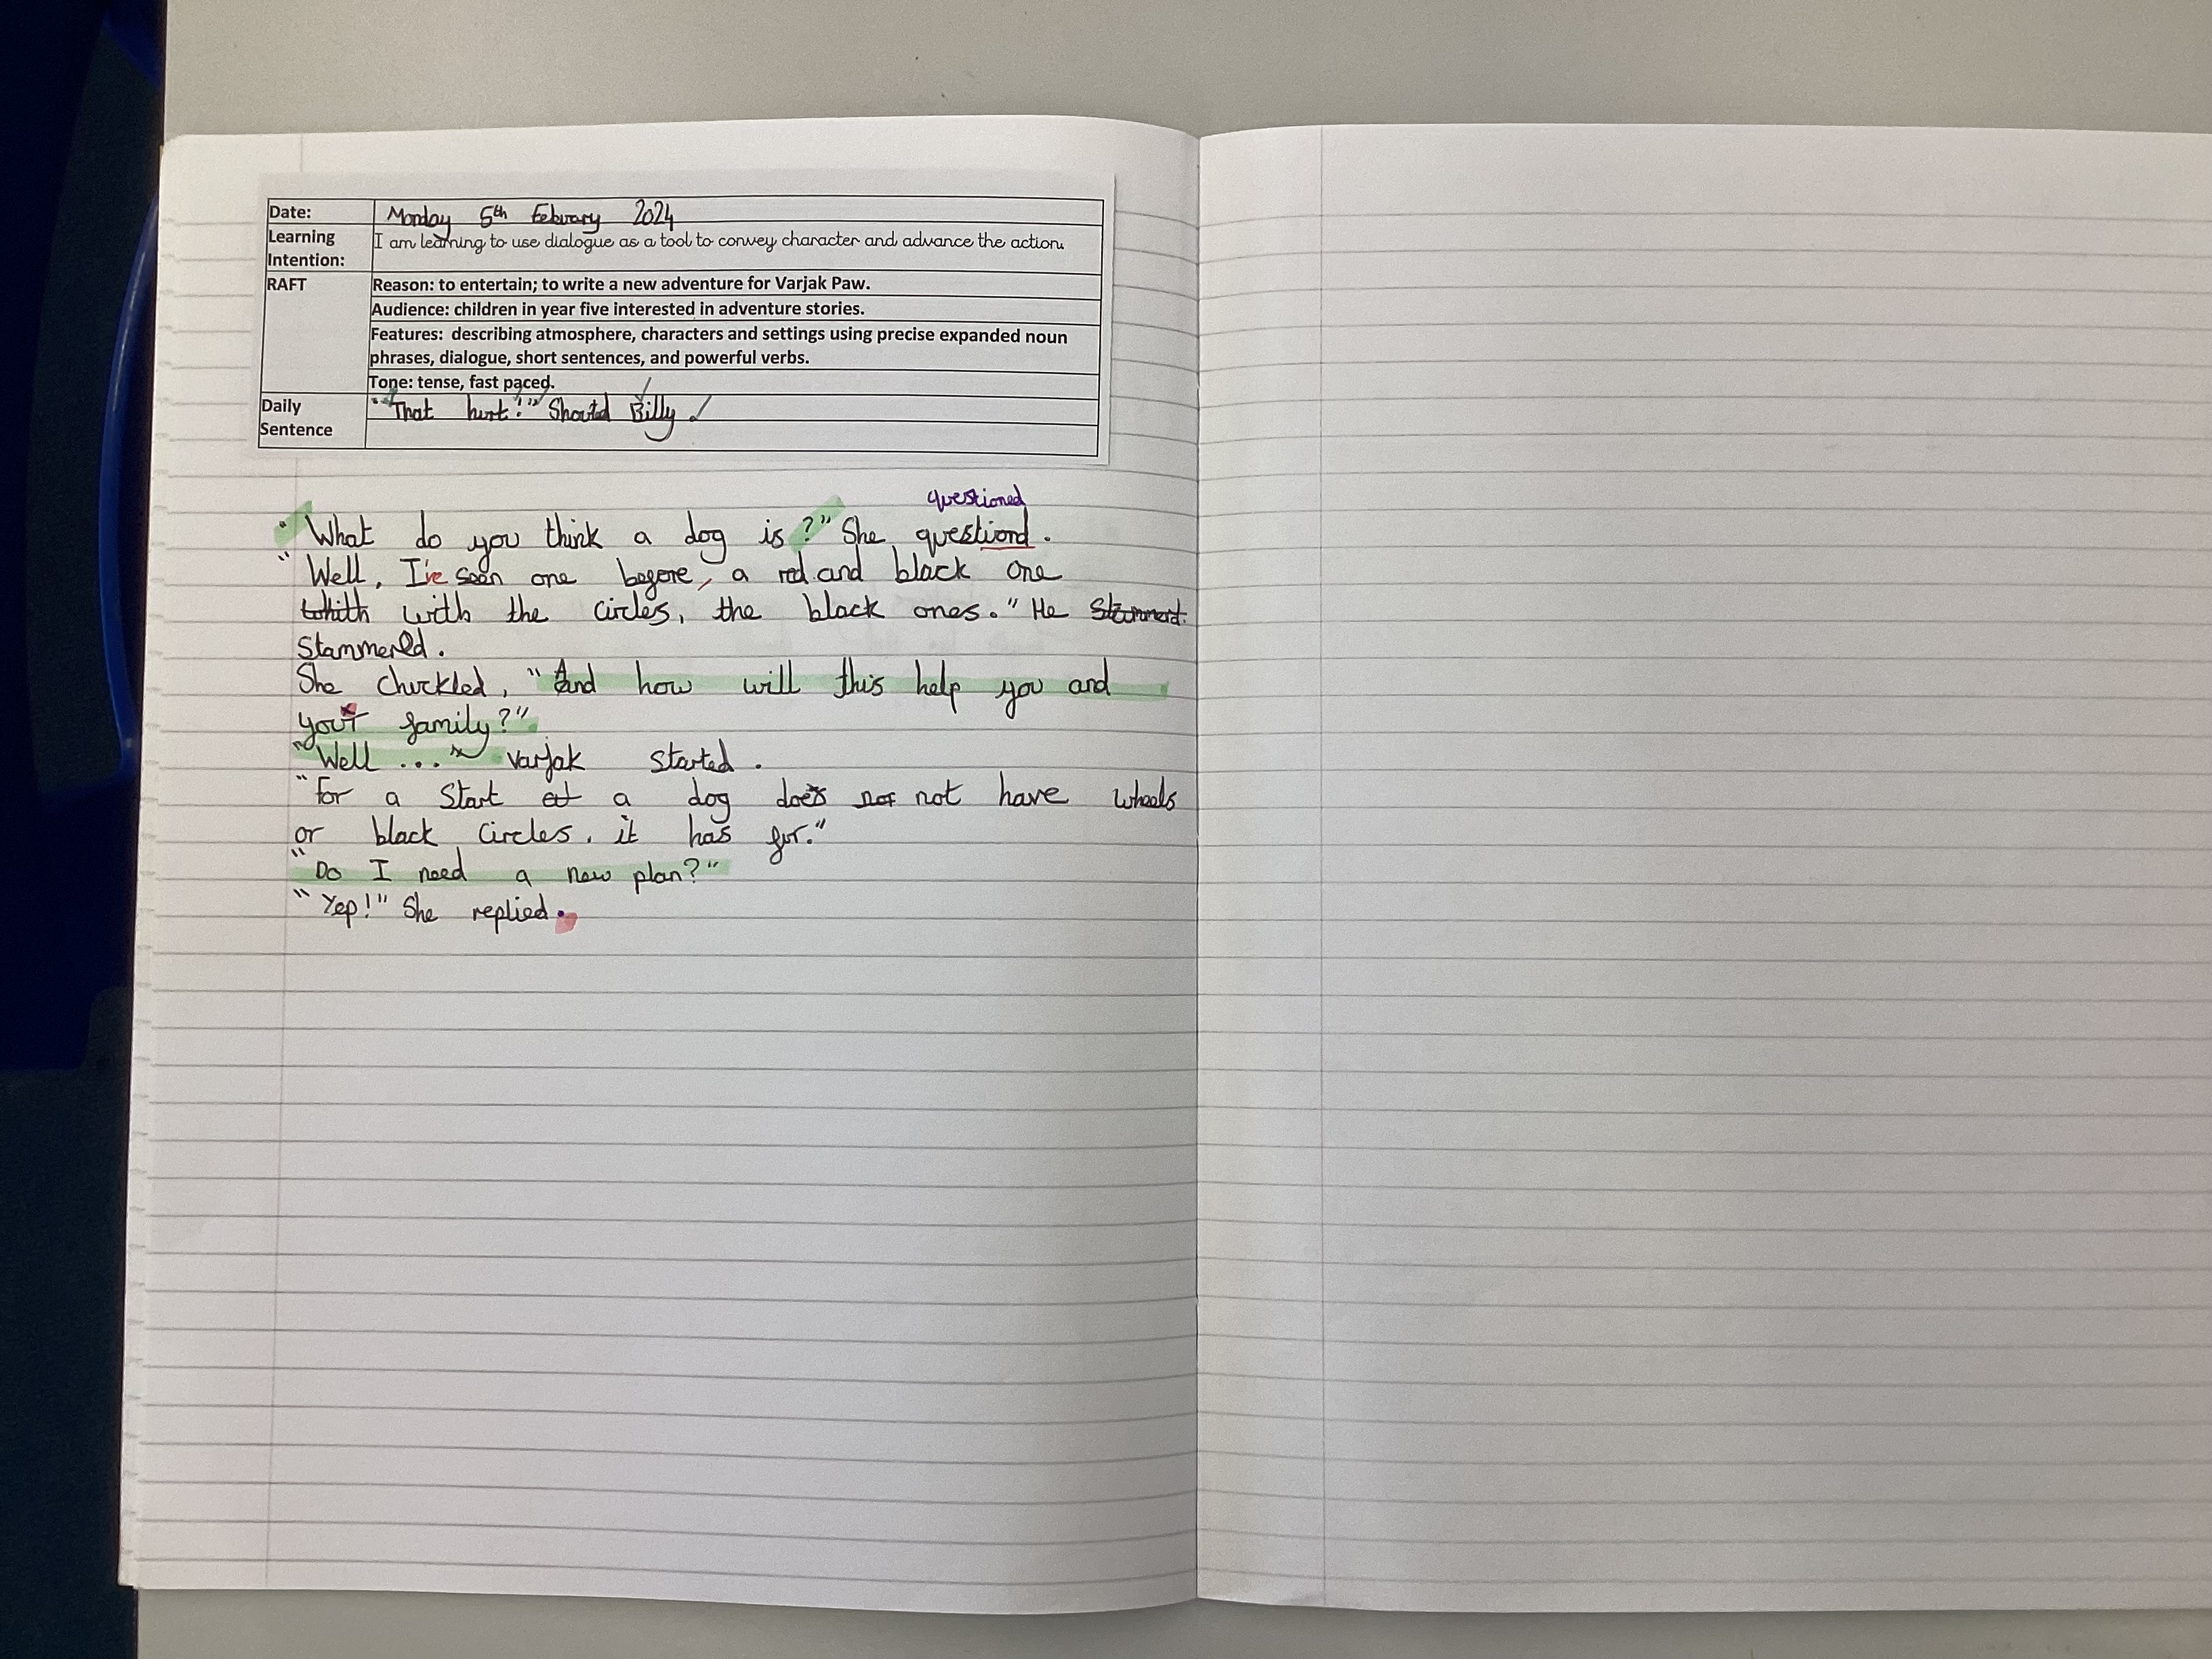 Date: Monday 5th Febuary 2024
Learning Intention: I am learning to use dialogue as a tool to convey character and advance the action.
RAFT Reason: to entertain; to write a new adventure for Varjak Paw.
Audience: children in year five interested in adventure stories.
Features: describing atmosphere, characters and settings using precise expanded noun
phrases, dialogue, short sentences, and powerful verbs.
Tone: tense, fast paced.
Daily Sentence "That hurt!" Shouted Billy
questioned
"What do you think a dog is?" She questiond.
"Well, I've seen one before, a red and black one
whith with the circles, the black ones." He
Stammerd.
She chuckled, "And how will this help you and
your family?"
"Well ..." Varjak started.
"For a start a dog does not not have wheels
or black circles, it has fur."
"Do I need a new plan?"
"Yep!" She replied.